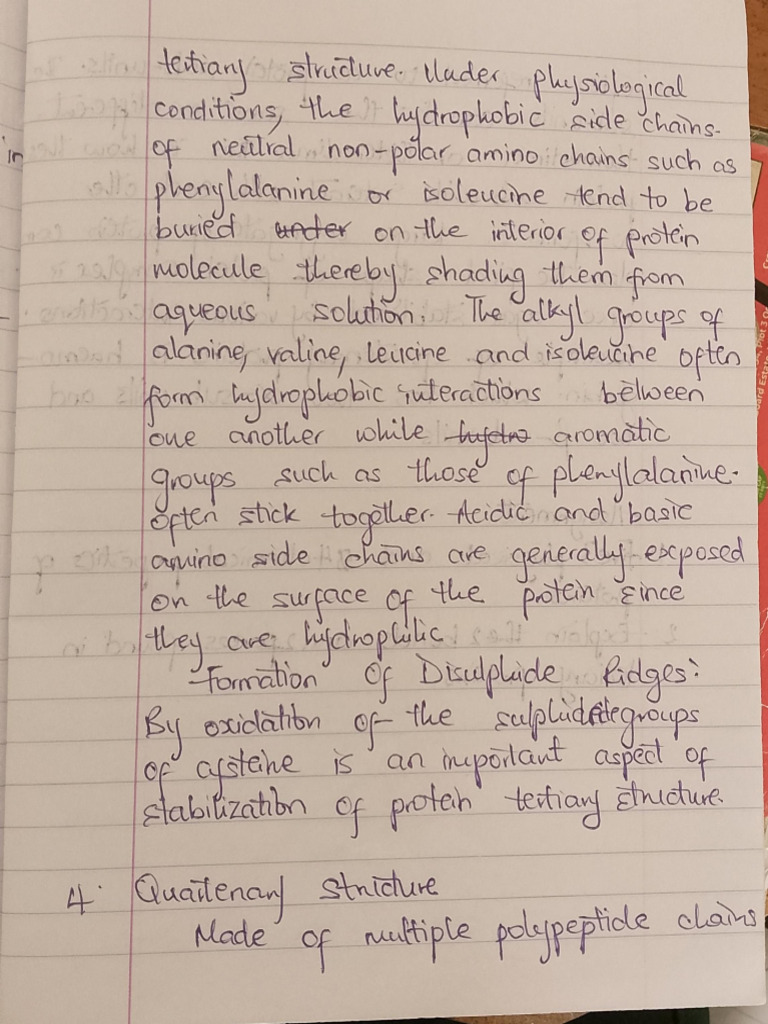 tertiary structure. Under physiological
conditions, the hydrophobic side chains.
in
of neutral non-polar amino chains such as
phenylalanine or isoleucine tend to be
buried under on the interior of protein
molecule thereby shading them from
aqueous solution. The alkyl groups of
alanine, valine, leucine and isoleucine often
form hydrophobic interactions between
one another while hydro aromatic
groups such as those of phenylalanine.
often stick together. Acidic and basic
amino side chains are generally exposed
on the surface of the protein since
they are hydrophilic.
Formation Of Disulphide Ridges:
By oxidation of the groups
of cysteine is an important aspect of
stabilization of protein tertiary structure.
4. Quaternary structure
Made of multiple polypeptide chains